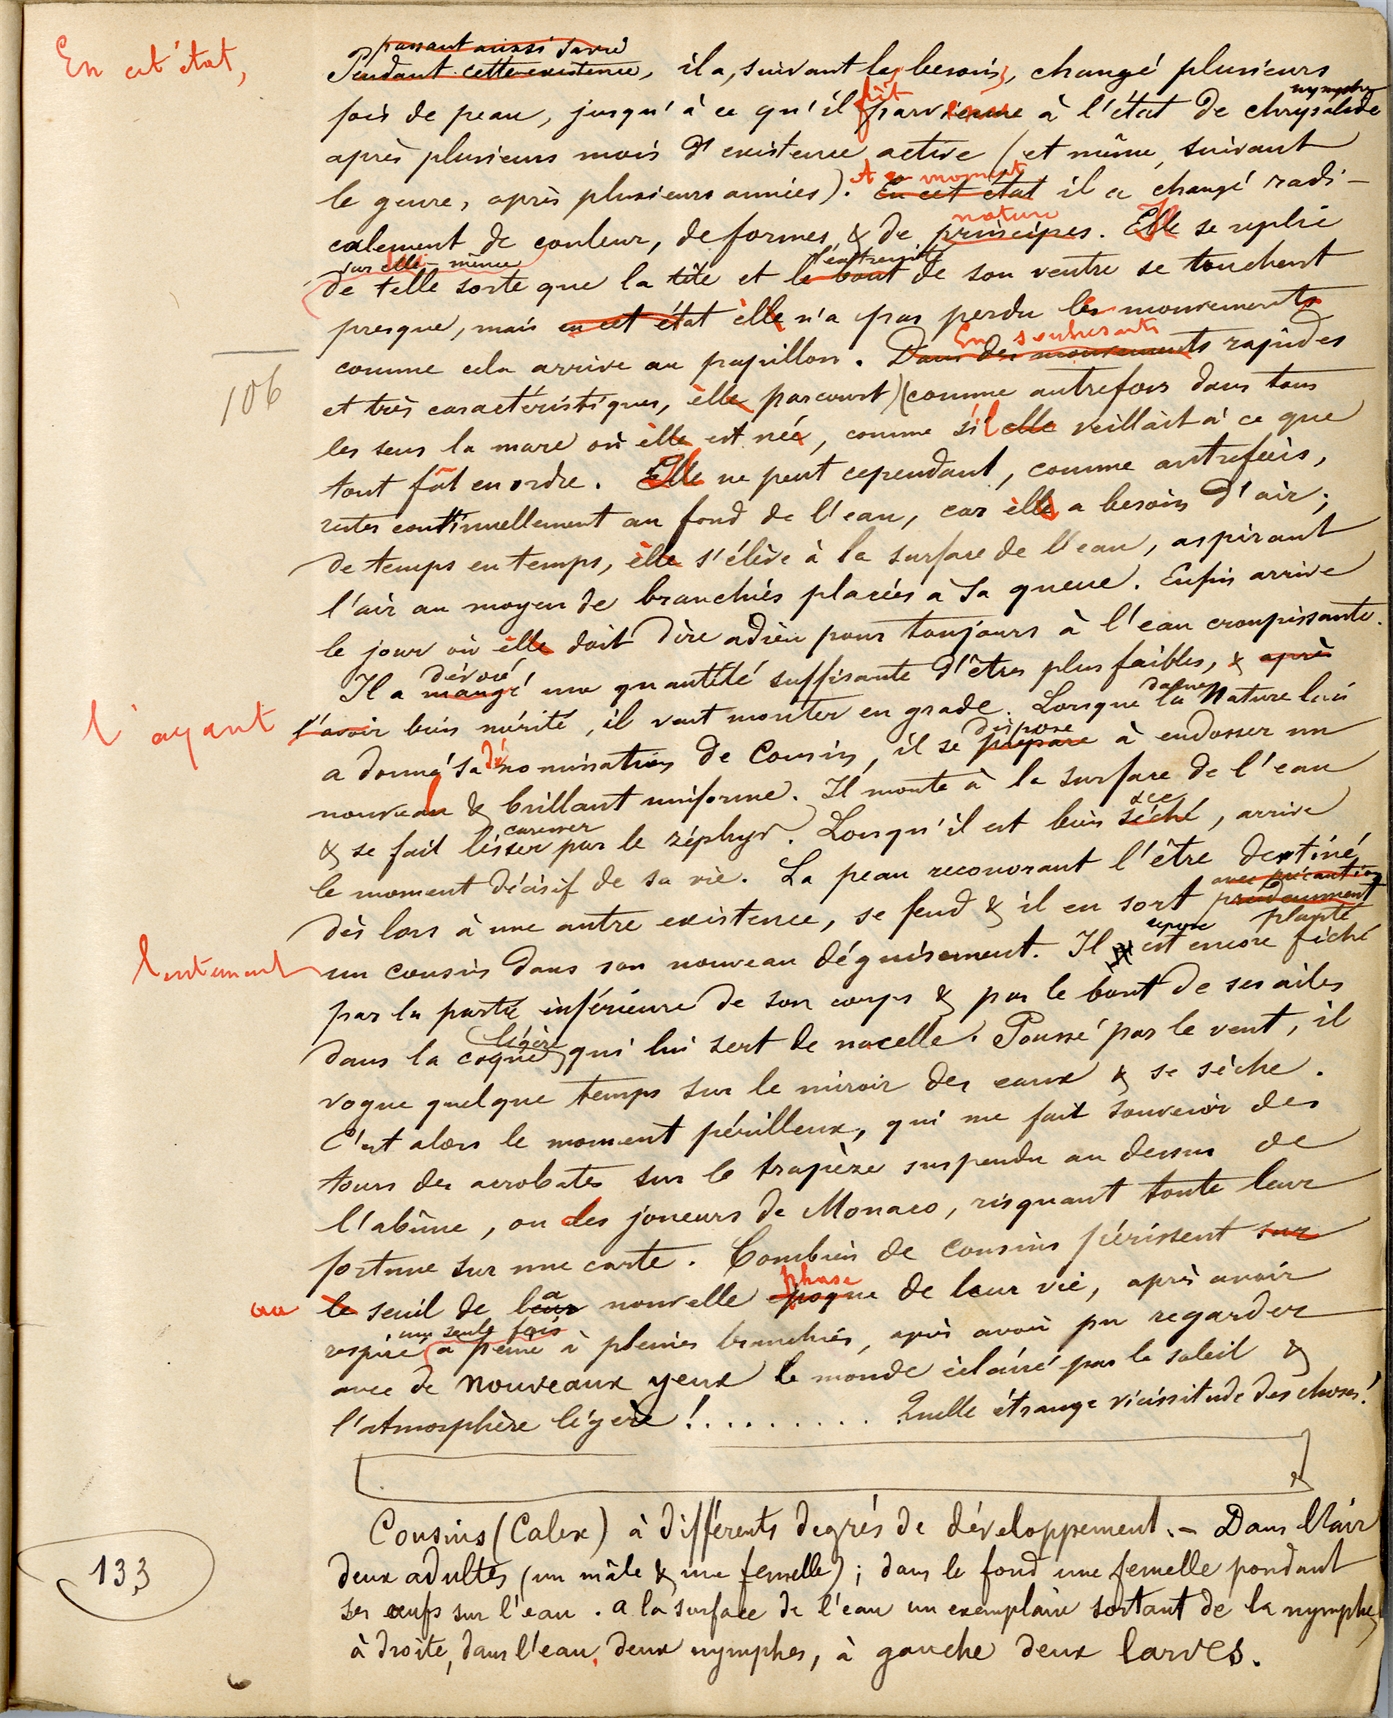 En cet état,
passant ainsi sa vie
Pendant cette existence, il a, suivant les besoins, changé plusieurs
nymphe
fois de peau, jusqu'à ce qu'il fût parvenu à l'état de chrysalide
après plusieurs mois d'existence active (et même, suivant
A ce moment
le genre, après plusieurs années). En cet état il a changé radi-
nature
calement de couleur, de formes & de principes. Elle Il se replie
sur elle-même l'extrémité
de telle sorte que la tête et le bout de son ventre se touchent
presque, mais en cet état elle n'a pas perdu les mouvements
En soubresauts
comme cela arrive au papillon. Dans des mouvements rapides
106
et très caractéristiques, elle parcourt (comme autrefois dans tous
les sens la mare où elle est née, comme s'il elle veillait à ce que
tout fût en ordre. Elle Il ne peut cependant, comme autrefois,
rester continuellement au fond de l'eau, car elle a besoin d'air;
de temps en temps, elle s'élève à la surface de l'eau, aspirant
l'air au moyen de branchies placées à sa queue. Enfin arrive
le jour où elle doit dire adieu pour toujours à l'eau croupissante.
dévoré
Il a mangé une quantité suffisante d'êtres plus faibles, & après
l'ayant
dame
l'avoir bien mérité, il veut monter en grade. Lorsque la Nature lui
dispose
a donné sa dénomination de Cousin, il se prépare à endosser un
nouveau & brillant uniforme. Il monte à la surface de l'eau
caresser sec
& se fait lisser par le zéphyr. Lorsqu'il est bien séché, arrive
le moment décisif de sa vie. La peau recouvrant l'être destiné
avec précaution
dès lors à une autre existence, se fend & il en sort prudemment
lentement
planté
un cousin dans son nouveau déguisement. Il est encore fiché
par la partie inférieure de son corps & par le bout de ses ailes
légère
dans la coque qui lui sert de nacelle. Poussé par le vent, il
vogue quelque temps sur le miroir des eaux & se sèche.
C'est alors le moment périlleux, qui me fait souvenir des
tours des acrobates sur le trapèze suspendu au dessus de
l'abîme, ou des joueurs de Monaco, risquant toute leur
fortune sur une carte. Combien de cousins périssent sur
au
phase
le seuil de la nouvelle epoque de leur vie, après avoir
une seule fois
respiré à peine à pleines branchies, après avoir pu regarder
avec de nouveaux yeux le monde éclairé par le soleil &
l'atmosphère légère!......... Quelle étrange vicissitude des choses!
Cousins (Calex) à différents degrés de développement. – Dans l'air
133
deux adultes (un mâle & une femelle); dans le fond une femelle pondant
ses œufs sur l'eau. a la surface de l'eau un exemplaire sortant de la nymphe,
à droite, dans l'eau, deux nymphes, à gauche deux larves.